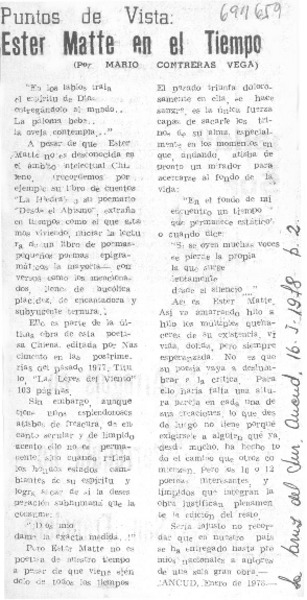 694659
Puntos de Vista:
Ester Matte en el Tiempo
(Por MARIO CONTRERAS VEGA)
"En los labios traía
el espíritu de Dios
entregándolo al mundo..
La paloma bebe..
la oveja contempla .."
A pesar de que Ester
Matte no es desconocida en
el ámbito intelectual Chi-
leno, (recordemos por
ejemplo su libro de cuentos
"La Hiedra" o su poemario
"Desde el Abismo", extraña
en tiempos como el que esta-
mos viviendo, iniciar la lectu-
ra de un libro de poemas-
pequeños poemas epigra-
máticos la mayoría— con
versos como los menciona-
dos, llenos de bucólica
placidez, de encantadora y
subyacente ternura.
Ello es parte de la úl-
tima obra de esta poe-
sa Chilena, editada por Nas
cimento en las postrime-
rías del pasado 1977. Títu-
lo, "Las Leyes del Viento"
103 páginas
Sin embargo, aunque
tiene unos esplendorosos
atisbos de frescura, de en-
canto secular y de límpido
acento ello no es perma-
nente; sólo cuando refleja
los hondos estados cam-
biantes de su espíritu y
logra sacar de sí la deses
peración subhumana que la
consume.
"Dios mío
dame la exacta medida..!"
Pero Ester Matte no es
poetisa de nuestro tiempo
a pesar de que viene sien
dolo de todos los tiempos
El pasado triunfa doloro-
samente en ella, se hace
sangre, es la única fuerza
capaz de sacarle los tri-
nos de su alma, especial-
mente en los momentos en
que, andando, atisba de
pronto un mirador para
acercarse al fondo de la
vida:
"En el fondo de mí
encuentro un tiempo
que permanece estático"
o cuando dice:
"Si se oyen muchas voces
se pierde la propia
la que surge
lentamente
desde el silencio ..."
Así es Ester Matte.
Así va amarrando hilo a
hilo los múltiples queha-
ceres de su existencia, vi
vida, dolida, pero siempre
esperanzada. No es que
su poesía vaya a deslum-
brar a la crítica. Para
ello haría falta una altu-
ra pareja en cada una de
sus creaciones, lo que des
de luego no tiene porqué
exigírsele a alguien que ya
desde mucho, ha hecho to
do el camino que otros co
mienzan. Pero los 10 o 12
poemas interesantes y
límpidos que integran la
obra justifican plenamen-
te la edición del resto
Sería injusto no recor-
dar que es nuestro país
se ha entregado hasta pre
mios nacionales a autores
de una sola gran obra.—
ANCUD, Enero de 1978.—
La Cruz del Sur, Ancud, 16-I-1979 p. 2.